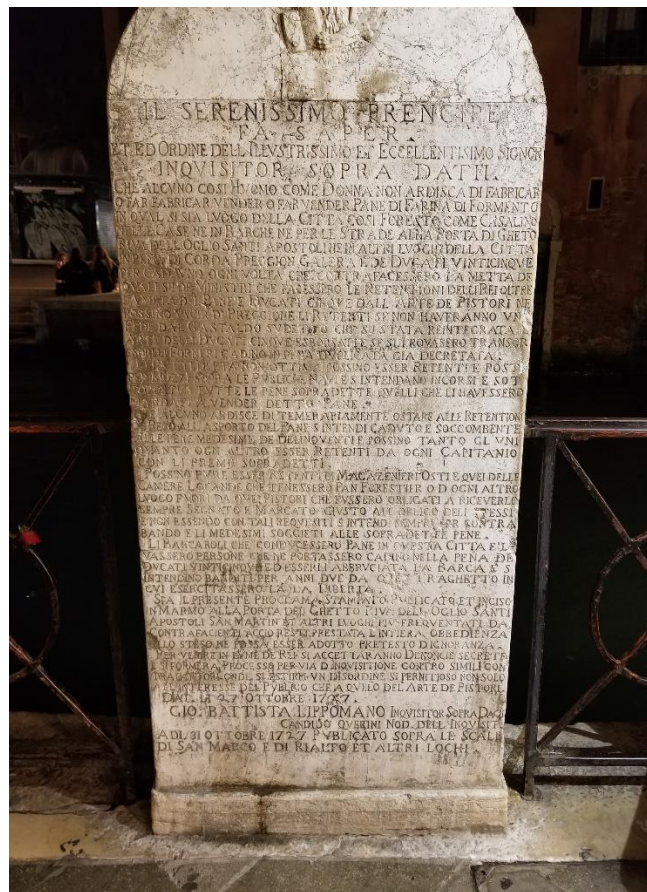 IL SERENISSIMO PRENCIPE
FA SAPER.
ET E D ORDINE DELL ILLVSTRISSIMO ET ECCELLENTISIMO SIGNOR
INQVISITOR SOPRA DATII.
CHE ALCVNO COSI HVOMO COME DONNA NON ARDISCA DI FABRICAR
O FAR FABRICAR VENDER O FAR VENDER PANE DI FARINA DI FORMENTO
IN QVAL SI SIA LVOGO DELLA CITTA COSI FORESTO COME CASALINO
NELLE CASE NE IN BARCHE NE PER LE STRADE ALLA PORTA DI GHETO
RIVA DELL OGLIO SANTI APOSTOLI NE IN ALTRI LVOGHI DELLA CITTA
IN PENA DI CORDA PREGGION GALERA E DE DVCATI VINTICINQVE
PER CADAVNO OGNI VOLTA CHE CONTRAFACESSERO LA METTA DE
QVALI SIJ DE MINISTRI CHE FACESSERO LE RETENTIONI DELLI REI OLTRE
DVCATI CINQVE DALL ARTE DE PISTORI NE
POSSINO PREGGIONE LI RETENTI SE NON HAVERANNO VN
GASTALDO SVDETTO CHE SIJ STATA REINTEGRATA
DVCATI CINQVE ESBORSATI E SE SI TROVASERO TRANSGR
PENA DVPLICATA GIA DECRETATA.
POSSINO ESSER RETENTI E POSTI
LE PVBLICHE NAVI E S INTENDANO INCORSI E SOT
TVTTE LE PENE SOPRADETTE QVELLI CHE LI HAVESSERO
VENDER DETTO PANE.
SE ALCVNO ARDISCE DI TEMERARIAMENTE OSTARE ALLE RETENTION
ALL ASPORTO DEL PANE S INTENDI CADVTO E SOCCOMBENTE
ALLE PENE MEDESIME DE DELINQVENTI E POSSINO TANTO GL VNI
QVANTO OGN ALTRO ESSER RETENTI DA OGNI CAPITANIO
CON LI PREMII SOPRADETTI.
POSSINO PVRE ESSER RETENTI I MAGAZENIERI OSTI E QVEI DELLE
CAMERE LOCANDE CHE TENESSERO PAN FORESTIER O D OGNI ALTRO
LVOGO FVORI DA QVEI PISTORI CHE FVSSERO OBLIGATI A RICEVERLO
SEMPRE SEGNATO E MARCATO GIVSTO ALL OBLIGO DELLI STESSI
E NON ESSENDO CON TALI REQVISITI S INTENDI SEMPRE PER CONTRA
BANDO E LI MEDESIMI SOGGIETI ALLE SOPRADETTE PENE.
LI BARCAROLI CHE CONDVCESSERO PANE IN QVESTA CITTA E LE
VASSERO PERSONE CHE NE PORTASSERO CADINO NELLA PENA DE
DVCATI VINTICINQVE E D ESSERLI ABBRVCIATA LA BARCA E S
INTENDINO BANDITI PER ANNI DVE DA QVEL TRAGHETTO IN
CVI ESERCITASSERO LA LA LIBERTA.
SIA IL PRESENTE PROCLAMA STAMPATO PVBLICATO ET INCISO
IN MARMO ALLA PORTA DEL GHETTO RIVA DELL OGLIO SANTI
APOSTOLI SAN MARTIN ET ALTRI LVOGHI PIV FREQVENTATI DA
CONTRAFACIENTI ACCIO RESTI PRESTATA L INTIERA OBBEDIENZA
ALLO STESO NE POSSA ESSER ADOTTO PRETESTO D IGNORANZA.
PER VENIRE IN LVME DE REI SI ACCETTARANNO DENONCIE SECRETE
E SI FORMERA PROCESSO PER VIA D INQVISITIONE CONTRO SIMILI CON
TRAFACTORI ONDE SI ESTIRPI VN DISORDINE SI PERNITIOSO NON SOLO
ALL INTERESSE DEL PVBLICO CHE A QVELO DEL ARTE DE PISTORI.
DAT. LI 27 OTTOBRE 1727.
GIO: BATTISTA LIPPOMANO INQVISITOR SOPRA DACI
CANDIDO QVERINI NOD. DELL INQVISIT.
ADI. 31 OTTOBRE 1727 PVBLICATO SOPRA LE SCALE
DI SAN MARCO E DI RIALTO ET ALTRI LOCHI